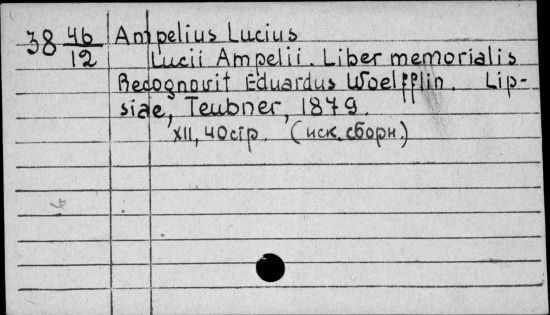 38 46/12 Ampelius Lucius
Lucii Ampelii. Liber memorialis
Recognovit Eduardus Woelfflin. Lip-
siae, Teubner, 1879.
XII, 40 стр. (иск. сборн.)